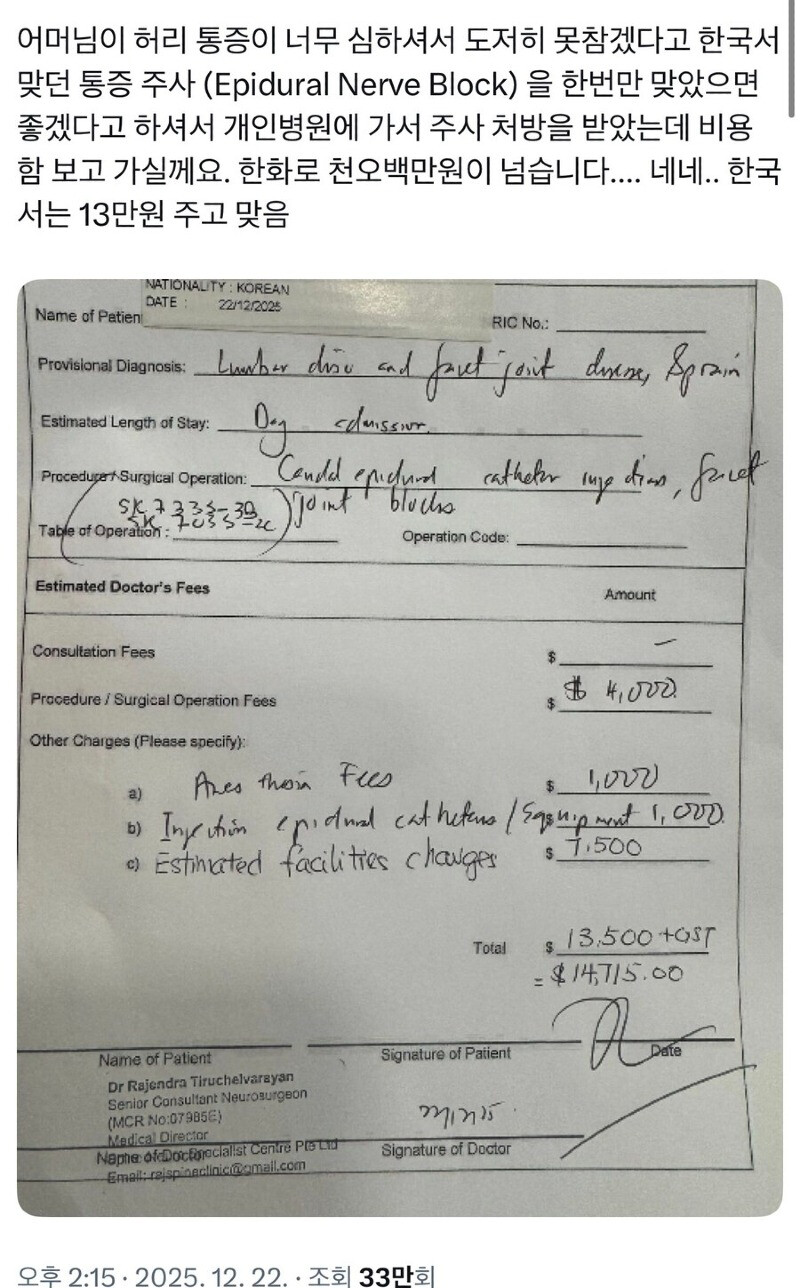 어머님이 허리 통증이 너무 심하셔서 도저히 못참겠다고 한국서
맞던 통증 주사 (Epidural Nerve Block) 을 한번만 맞았으면
좋겠다고 하셔서 개인병원에 가서 주사 처방을 받았는데 비용
함 보고 가실께요. 한화로 천오백만원이 넘습니다.... 네네.. 한국
서는 13만원 주고 맞음
NATIONALITY : KOREAN
DATE : 22/12/2025
Name of Patien
RIC No.:
Provisional Diagnosis: Lumbar disc and facet joint disease, Sprain
Estimated Length of Stay: Day admission
Procedure / Surgical Operation: Caudal epidural catheter injections, facet
joint blocks
SK 7233-30
SK 7033-2C
Table of Operation :
Operation Code:
Estimated Doctor's Fees
Amount
Consultation Fees $ –
Procedure / Surgical Operation Fees $ $ 4,000
Other Charges (Please specify):
a) Fees $ 1,000
b) Injection epidural catheters / Equipment 1,000
c) Estimated facilities charges $ 7,500
Total $ 13,500 + GST
= $ 14,715.00
Name of Patient
Signature of Patient
Date
Dr Rajendra Tiruchelvarayan
Senior Consultant Neurosurgeon
(MCR No:07985E)
Medical Director
Name of Doctor
Specialist Centre Pte Ltd
Email: rajspineclinic@gmail.com
Signature of Doctor
오후 2:15 · 2025. 12. 22. · 조회 33만회